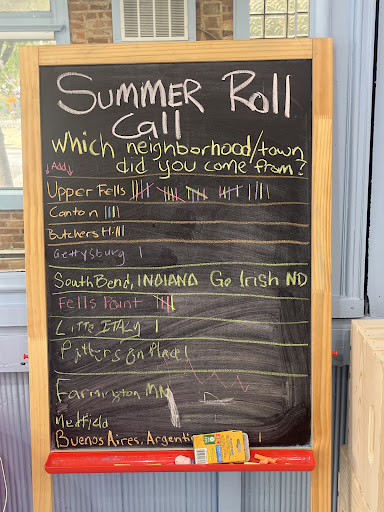 SUMMER Roll
Call
Which neighborhood/town
did you come from?
↓Add↓
Upper Fells
Canton
Butchers Hill
Gettysburg
South Bend, INDIANA Go Irish ND
Fells Point
Little ITALY
Farmington MN
Medfield
Buenos Aires, Argenti